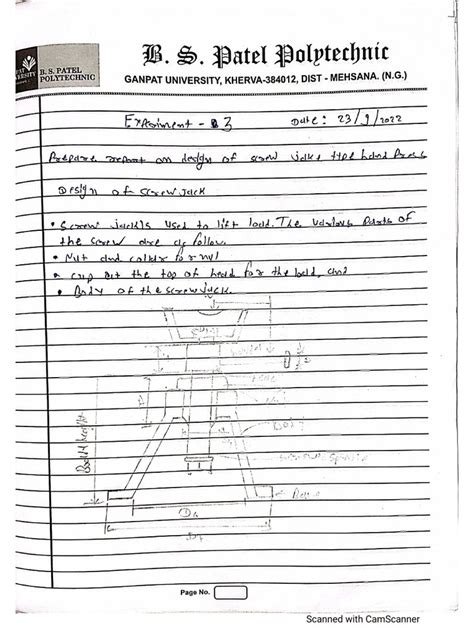 B. S. PATEL
POLYTECHNIC
B. S. Patel Polytechnic
GANPAT UNIVERSITY, KHERVA-384012, DIST - MEHSANA. (N.G.)
Experiment - 3
Date : 23/9/2022
Prepare report on design of screw jacks type hand Press
Design of screw jack
• Screw jack is used to lift load. The various Parts of
the screw are as follow.
• Nut and collar for nut
• cup at the top of head for the load, and
• Body of the screw jack.
Body
D4
Page No.
Scanned with CamScanner